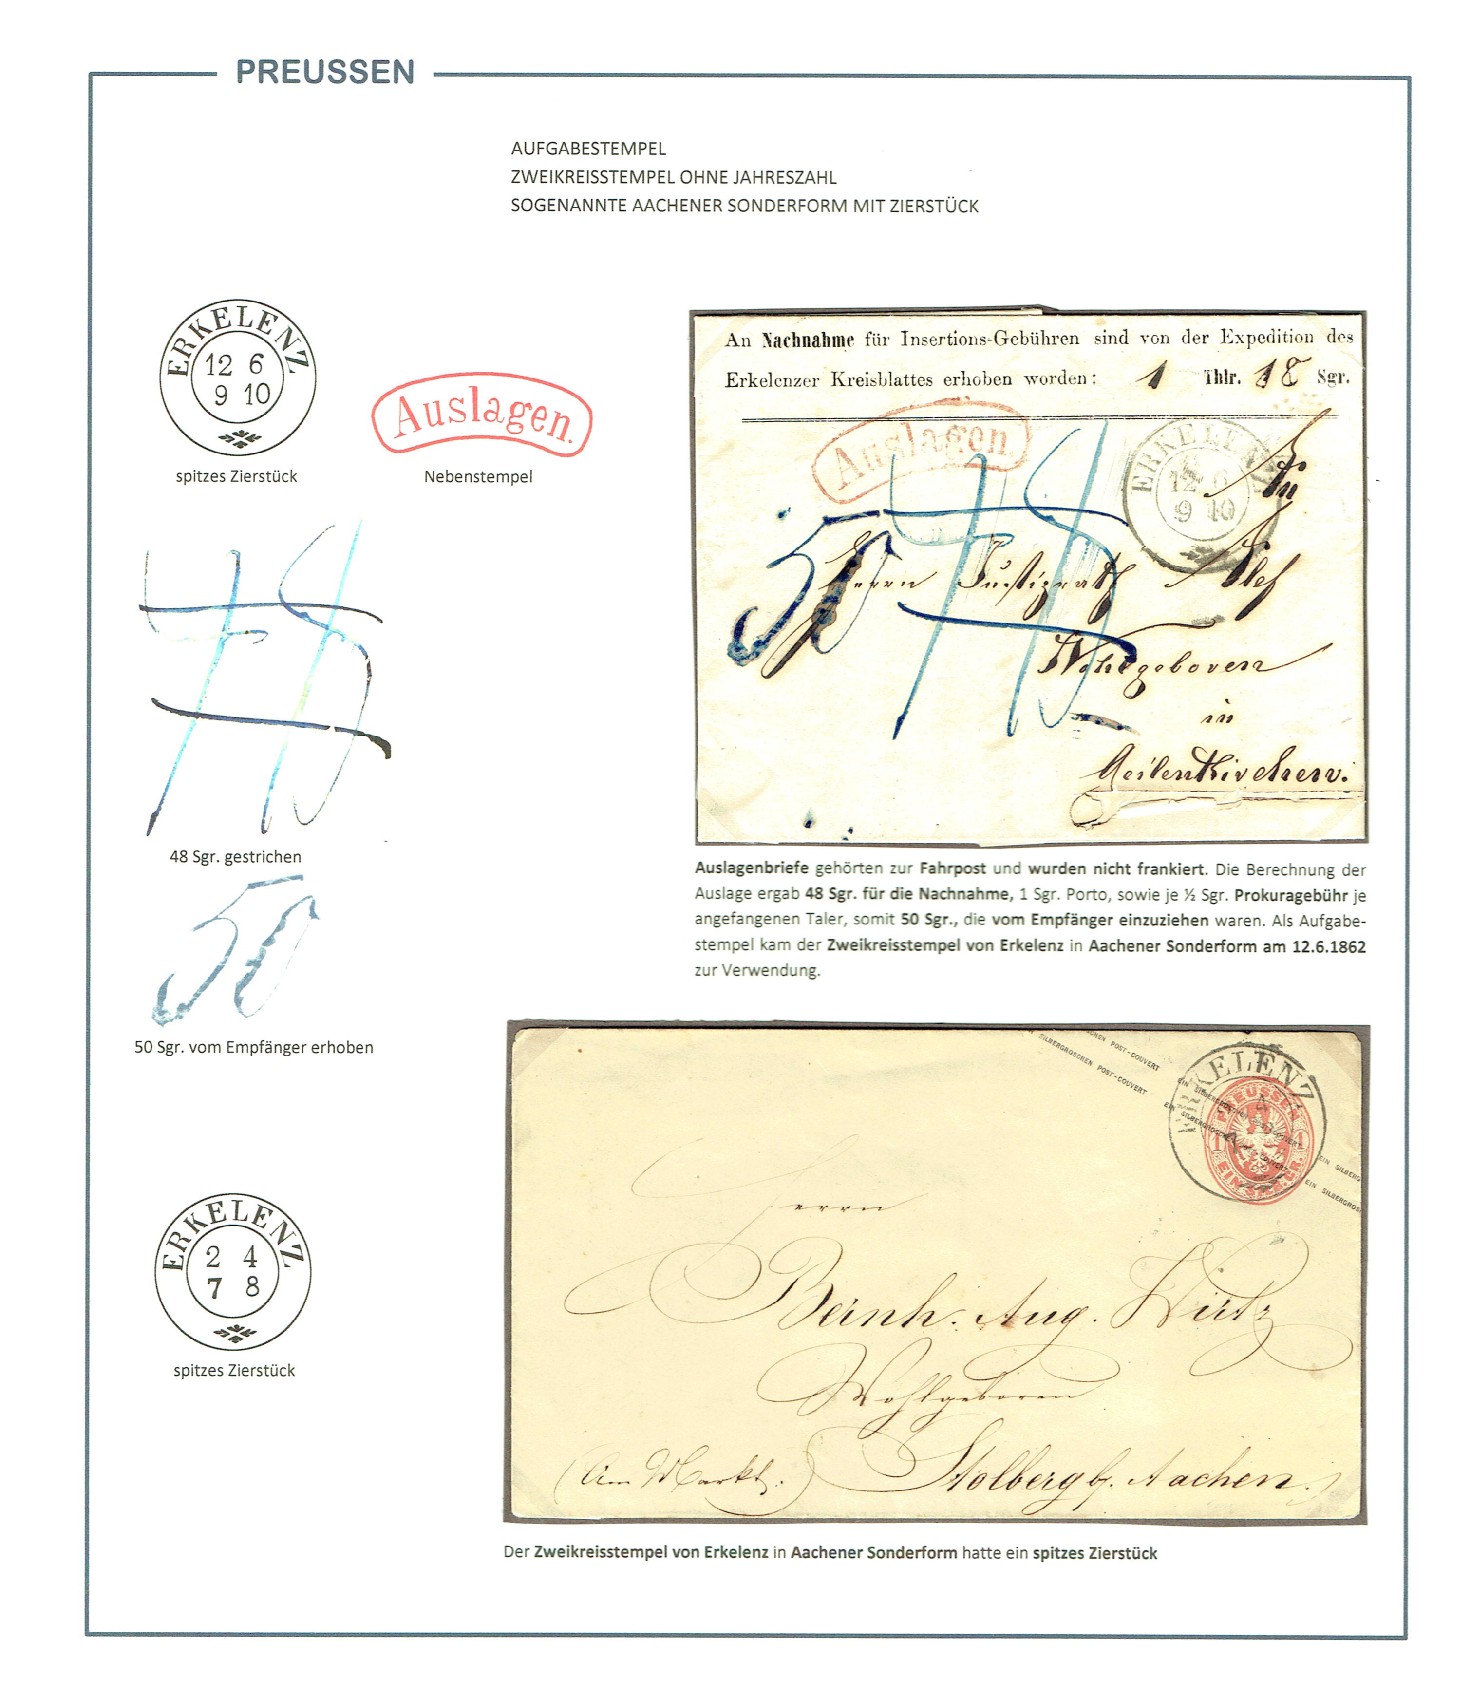 PREUSSEN
AUFGABESTEMPEL
ZWEIKREISSTEMPEL OHNE JAHRESZAHL
SOGENANNTE AACHENER SONDERFORM MIT ZIERSTÜCK
ERKELENZ
12 6
9 10
spitzes Zierstück
Auslagen.
Nebenstempel
48
48 Sgr. gestrichen
50
50 Sgr. vom Empfänger erhoben
An Nachnahme für Insertions-Gebühren sind von der Expedition des
Erkelenzer Kreisblattes erhoben worden: 1 Thlr. 18 Sgr.
Auslagen.
ERKELENZ
12 6
9 10
An
50 48
Herrn Justizrath
Wohlgeboren
in
Geilenkirchen.
Auslagenbriefe gehörten zur Fahrpost und wurden nicht frankiert. Die Berechnung der
Auslage ergab 48 Sgr. für die Nachnahme, 1 Sgr. Porto, sowie je ½ Sgr. Prokuragebühr je
angefangenen Taler, somit 50 Sgr., die vom Empfänger einzuziehen waren. Als Aufgabe-
stempel kam der Zweikreisstempel von Erkelenz in Aachener Sonderform am 12.6.1862
zur Verwendung.
SILBERGROSCHEN POST-COUVERT
ERKELENZ
PREUSSEN
1 1
EIN SILB. GR.
EIN SILBERGROS
Herrn
Bernh. Aug. Wirtz
Wohlgeboren
(Am Markt.) Stolberg b/ Aachen.
ERKELENZ
2 4
7 8
spitzes Zierstück
Der Zweikreisstempel von Erkelenz in Aachener Sonderform hatte ein spitzes Zierstück